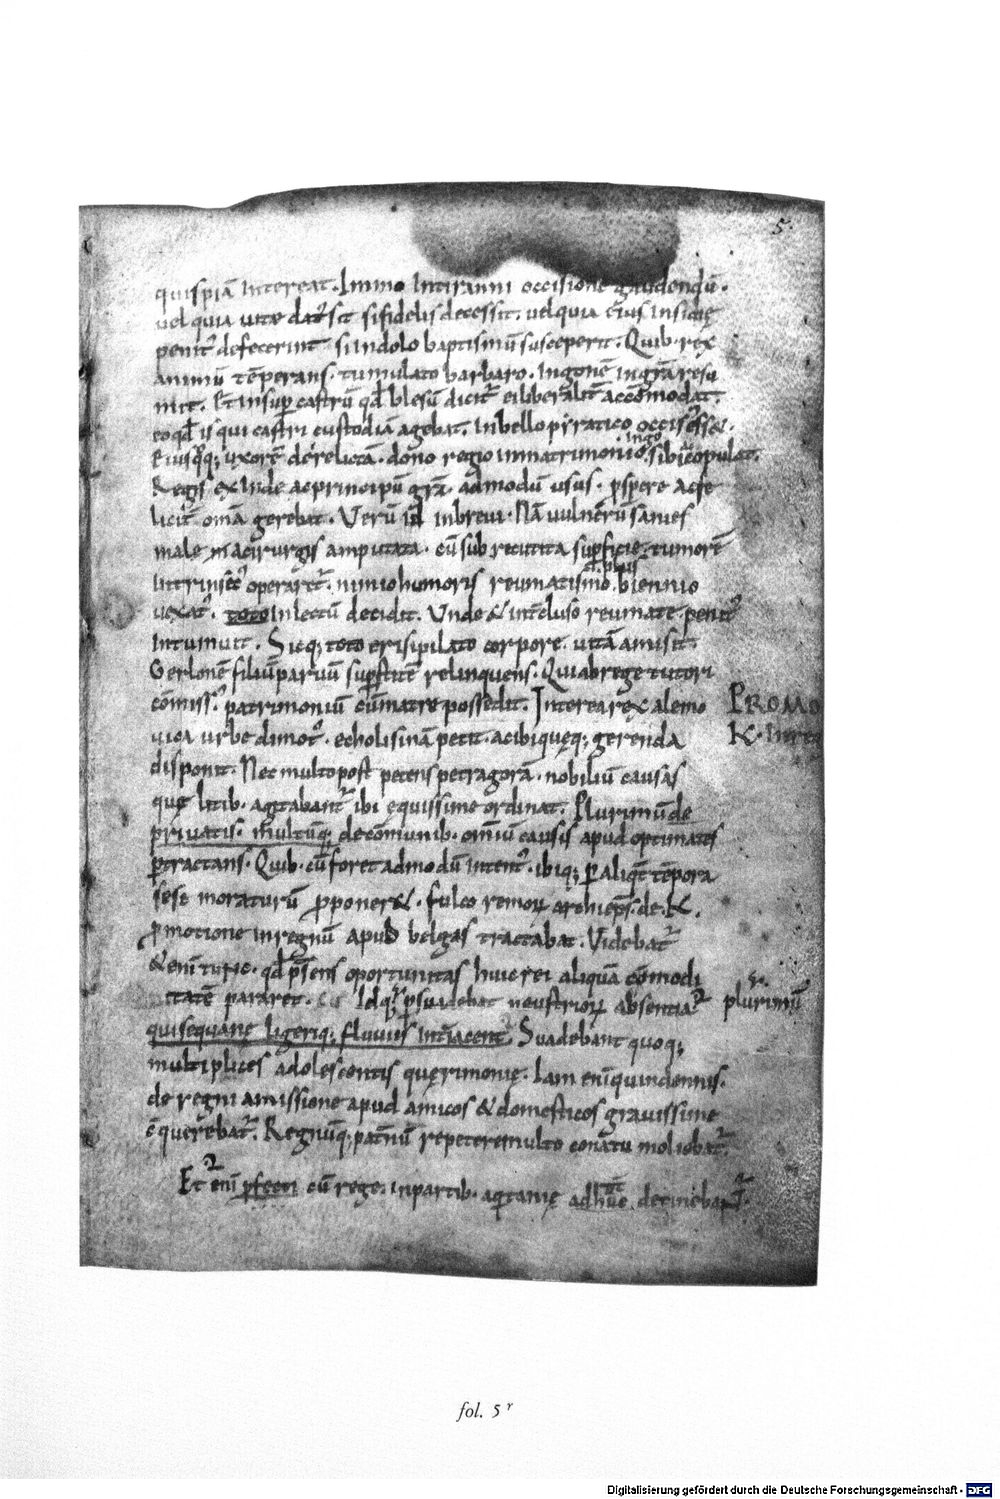 5.
quispiā intereat. Immo intiranni occisione gaudendū.
uel quia uitae dat᷒ sit si fidelis decessit. uel quia ei᷒ insidię
penit᷒ defecerint si in dolo baptismū susceperit. Quib. rex
animū tēperans. tumulato barbaro. Ingonē in grā resu
mit. Et insup castrū qd̄ blesū dicit᷒ ei liberalit̄ accōmodat.
eo qd̄ is qui castri custodiā agebat. in bello pyratico occis᷒ ess&.
Eiusq; uxorē derelictā. dono regio in matrimonio
ingo
sibi copulat.
Regis exinde ac principū grā. admodū usus. pspere ac fe
licit̄ omā gerebat. Verū id inbreui. Nā uulnerū sanies
male a cirurgis amputata. cū sub recutita supficie. tumorē
intrinsec᷒ operaret᷒. nimio humoris reumatismo.
plus
biennio
uexat᷒. toto in lectū decidit. Unde & intercluso reumate. penit᷒
intumuit. Sicq; toto erisipilato corpore. uitā amisit.
Gerlonē filiū paruū supstitē relinquens. Qui a brege tutori
cōmiss᷒. patrimoniū cū matre possedit. Interea rex alemo
uica urbe dimot᷒. echolisinā petit. ac ibi quęq; gerenda
PROMO
K.
disponit. Nec multo post petens petragorā. nobiliū causas
quę litib. agitabant᷒ ibi ęquissime ordinat. Plurimū de
priuatis. multūq; de cōmunib. omniū causis apud optimates
ptractans. Quib. cū foret admodū intent᷒. ibiq; p aliqt̄ tēpora
sese moraturū pponer&. fulco remoꝝ archieps̄. de .K.
pmotione in regnū apud belgas tractabat. Videbat᷒
& eni tunc. qd̄ psens oportunitas huic rei aliquā cōmodi
tatē pararet. Id q; psuadebat neustrioꝝ absentia᷒
plurimū
qui sequanę ligeriq; fluuiis int̄iacent᷒. Suadebant quoq;
multiplices adolescentis querimonię. Iam eni quindennis.
de regni amissione apud amicos & domesticos grauissime
cquerebat᷒. Regnūq; patnū repetere multo conatu moliebat᷒.
Et eni pfecti cū rege. in partib. aqtanię adhuc detinebant᷒.
fol. 5 r
Digitalisierung gefördert durch die Deutsche Forschungsgemeinschaft - DFG